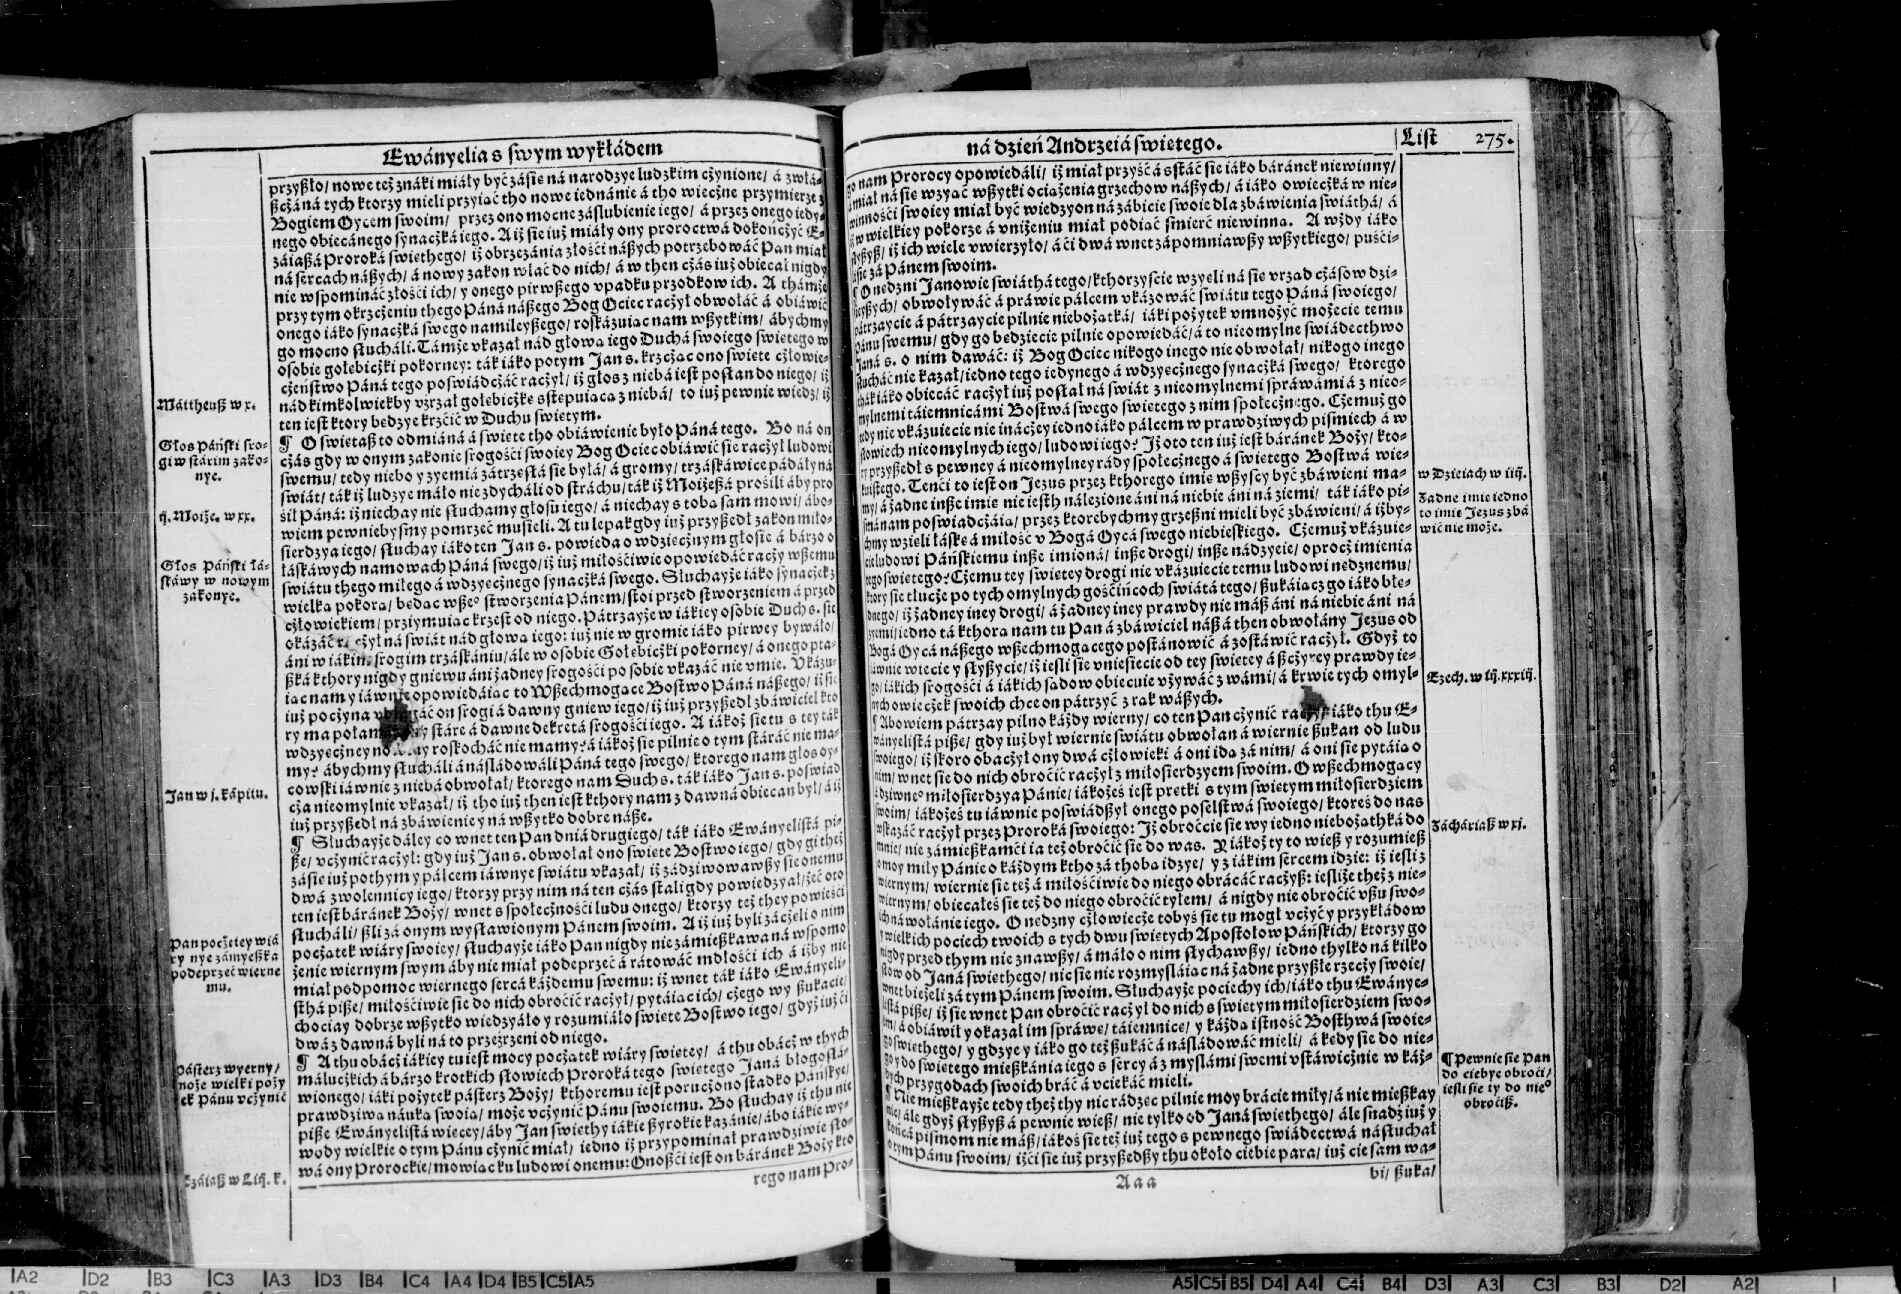 Ewányelia s swym wykładem
przyßło/ nowe też znáki miáły być zásie ná narodzye ludzkim cżynione/ á zwłá-
ßcżá ná tych ktorzy mieli przyiáć tho nowe iednánie á tho wiecżne przymierze z
Bogiem Oycem swoim/ przez ono mocne záslubienie iego/ á przez onego iedy-
nego obiecánego synacżká iego. A iż sie iuż miáły ony proroctwá dokończyć E-
záiaßá Proroká swiethego/ iż obrzezánia złości nászych potrzebowáć Pan miał
ná sercach nászych/ á nowy zakon wlać do nich/ á w then cżás iuż obiecał nigdy
nie wspomináć złości ich/ y onego pirwßego vpadku przodkow ich. A thámże
przy tym okrzcżeniu thego Páná nászego Bog Ociec racżył obwołáć á obiáwić
onego iáko synacżká swego namileyßego/ roskázuiac nam wßytkim/ ábychmy
go mocno słucháli. Támże vkazał nád głową iego Duchá swoiego swietego w
osobie gołebicżki pokorney: ták iáko potym Jan s. krzcżac ono swiete cżłowie-
cżeństwo Páná tego poswiádcżáć racżył/ iż głos z niebá iest posłan do niego/ iż
nád kimkolwiekby vźrzał gołebicżke zstepuiaca z niebá/ to iuż pewnie wiedz/ iż
ten iest ktory bedzye krzcić w Duchu swietym.
¶ O swietaß to odmiáná á swiete tho obiáwienie było Páná tego. Bo ná on
cżás gdy w onym zakonie srogości swoiey Bog Ociec obiáwić sie racżył ludowi
swemu/ tedy niebo y zyemiá zátrzęsłá sie byłá/ á gromy/ trzaskáwice pádáły ná
swiát/ ták iż ludzye máło nie zdycháli od stráchu/ ták iż Moiżeßá prosili áby pro
sił Páná: iż niechay nie słuchamy głosu iego/ á niechay s tobą sam mowi/ ábo-
wiem pewniebysmy pomrzeć musieli. A tu lepak gdy iuż przyßedł zakon miło-
sierdzya iego/ słuchay iáko ten Jan s. powieda o wdziecżnym głosie á bárzo o
łáskáwych namowach Páná swego/ iż iuż miłościwie opowiedáć racży wßemu
swiátu thego miłego á wdzyecżnego synacżká swego. Słuchayże iáko synacżek z
wielką pokorą/ bedac wßeo stworzenia Pánem/ stoi przed stworzeniem á przed
cżłowiekiem/ przyimuiac krzest od niego. Pátrzayże w iákiey osobie Duch s. sie
okázáć racżył ná swiát nád głową iego: iuż nie w gromie iáko pirwey bywáło/
áni w iákim srogim trzáskániu/ ále w osobie Gołebicżki pokorney/ á onego ptá-
ßká kthory nigdy gniewu áni żadney srogości po sobie vkazáć nie vmie. Vkázu-
iac nam y iáwnie opowiedáiac to Wßechmogace Bostwo Páná nászego/ iż sie
iuż pocżyna on srogi á dawny gniew iego/ iż iuż przyßedł zbáwiciel kto
ry ma połamáć stáre á dawne dekretá srogości iego. A iákoż sie tu s tey ták
wdzyecżney roskocháć nie mamy? á iákoż sie pilnie o tym stáráć nie ma-
my? ábychmy słucháli á násládowáli Páná tego swego/ ktorego nam głos oy-
cowski iáwnie z niebá obwołał/ ktorego nam Duch s. ták iáko Jan s. poswiad
cża nieomylnie vkazał/ iż tho iuż then iest kthory nam z dawná obiecan był/ á iż
iuż przyßedł ná zbáwienie y ná wßytko dobre násze.
¶ Słuchayże dáley co wnet ten Pan dniá drugiego/ ták iáko Ewányelistá pi-
ße/ vcżynić racżył: gdy iuż Jan s. obwołał ono swiete Bostwo iego/ gdy gi też
zásie iuż pothym y pálcem iáwnye swiátu vkazał/ iż zádziwowawßy sie onemu
dwá zwolennicy iego/ ktorzy przy nim ná ten cżás stali gdy powiedzyał/ żeć oto
ten iest báránek Boży/ wnet s społecżności ludu onego/ ktorzy też they powieści
słucháli/ ßli zá onym wysławionym Pánem swoim. A iż iuż byli zácżeli o nim
pocżatek wiáry swoiey/ słuchayże iáko Pan nigdy nie zámießkawa ná wspomo
żenie wiernym swym áby nie miał podeprzeć á rátowáć mdłości ich á iżby nie
miał podpomoc wiernego sercá káżdemu swemu: iż wnet ták iáko Ewányeli-
sthá piße/ miłościwie sie do nich obroćić racżył/ pytáiac ich/ cżego wy ßukácie/
chociay dobrze wßytko wiedzyáło y rozumiáło swiete Bostwo iego/ gdyż iuż ci
dwá z dawná byli ná to przeźrzeni od niego.
¶ A thu obácż iákiey tu iest mocy pocżatek wiáry swietey/ á thu obácż w thych
málucżkich á bárzo krotkich słowiech Proroká tego swietego Janá błogosłá-
wionego/ iáki pożytek pásterz Boży/ kthoremu iest porucżono stádko Páńskye/
prawdziwa náuká swoia/ może vcżynić Pánu swoiemu. Bo słuchay iż thu nie
piße Ewányelistá wiecey/ áby Jan swiethy iákie ßyrokie kazánie/ ábo iákie wy-
wody wielkie o tym Pánu cżynić miał/ iedno iż przypominał prawdziwie sło-
wá ony Prorockie/ mowiac ku ludowi onemu: Onoßci iest on báránek Boży kto
rego nam Pro-
Máttheuß w x.
Głos Páński sro-
gi w stárim záko-
nye.
ij. Moiże. w xx.
Głos Páński łá-
skáwy w nowym
zakonye.
Jan w j. kápitu.
Pan pocżetey wiá
ry nye zámyeßka
podeprzeć wierne
mu.
Pásterz wyerny/
może wielki poży
tek Pánu vcżynić
Ezáiaß w Liij. k.
ná dzień Andrzeiá swietego.
List 275.
go nam Prorocy opowiedáli/ iż miał przyść á sstáć sie iáko báránek niewinny/
á miał ná sie wzyać wßytki ociażenia grzechow nászych/ á iáko owiecżká w nie-
winności swoiey miał być wiedzyon ná zábicie swoie dla zbáwienia swiáthá/ á
iż w wielkiey pokorze á vniżeniu miał podiać śmierć niewinna. A wżdy iáko
słyßyß/ iż ich wiele vwierzyło/ á ci dwá wnet zápomniawßy wßytkiego/ puści-
li sie zá Pánem swoim.
¶ O nedzni Janowie swiáthá tego/ kthorzyscie wzyeli ná sie vrzad cżásow dzi-
sieyßych/ obwoływáć á práwie pálcem vkázowáć swiátu tego Páná swoiego/
pátrzaycie á pátrzaycie pilnie niebożatká/ iáki pożytek vmnożyć możecie temu
Pánu swemu/ gdy go bedziecie pilnie opowiedáć/ á to nieomylne swiádecthwo
Janá s. o nim dawáć: iż Bog Ociec nikogo inego nie obwołał/ nikogo inego
słucháć nie kazał/ iedno tego iedynego á wdzyecżnego synacżká swego/ ktorego
thák iáko obiecáć racżył iuż posłał ná swiát z nieomylnemi spráwámi á z nieo-
mylnemi táiemnicámi Bostwá swego swietego z nim społecżnego. Cżemuż go
tedy nie vkázuiecie nie inácżey iedno iáko pálcem w prawdziwych pismiech á w
słowiech nieomylnych iego/ ludowi iego? Iż oto ten iuż iest báránek Boży/ kto-
ry przyßedł s pewney á nieomylney rády społecżnego á swietego Bostwá wie-
kuistego. Tenći to iest on Jezus przez kthorego imie wßyscy być zbáwieni ma-
my/ á żadne inße imie nie iesth nálezione áni ná niebie áni ná ziemi/ ták iáko pi-
smá nam poswiadcżáia/ przez ktorebychmy grzeßni mieli być zbáwieni/ á iżby-
chmy wzieli łáske á miłość v Bogá Oycá swego niebieskiego. Cżemuż vkázuie-
cie ludowi Páńskiemu inße imioná/ inße drogi/ inße nádzyeie/ oprocż imienia
tego swietego? Cżemu tey swietey drogi nie vkázuiecie temu ludowi nedznemu/
ktory sie tłucże po tych omylnych gościńcoch swiátá tego/ ßukáiacz go iáko błe-
dnego/ iż żadney iney drogi/ á żadney iney prawdy nie máß áni ná niebie áni ná
zyemi/ iedno tá kthora nam tu Pan á zbáwiciel náß á then obwołány Jezus od
Bogá Oycá nászego wßechmogącego postánowić á zostáwić racżył. Gdyż to
iáwnie wiecie y słyßycie/ iż iesli sie vniesiecie od tey swietey á ßcżyrey prawdy ie-
go/ iákich srogości á iákich sadow obiecuie vżywáć z wámi/ á krwie tych omyl-
nych owiecżek swoich chce on pátrzyć z rak wászych.
¶ Abowiem pátrzay pilno káżdy wierny/ co ten Pan cżynić racży/ iáko thu E-
wányelistá piße/ gdy iuż był wiernie swiátu obwołan á wiernie ßukan od ludu
swoiego/ iż skoro obacżył ony dwá cżłowieki á oni ida zá nim/ á oni sie pytáia o
nim/ wnet sie do nich obroćić racżył z miłosierdzyem swoim. O wßechmogacy
á dziwneo miłosierdzya Pánie/ iákożeś iest pretki s tym swietym miłosierdziem
swoim/ iákożeś tu iáwnie poswiádßył onego poselstwá swoiego/ ktoreś do nas
wskazáć racżył przez Proroká swoiego: Iż obroćcie sie wy iedno niebożathká do
mnie/ nie zámießkamći ia też obroćić sie do was. A iákoż ty to wieß y rozumieß
o moy miły Pánie o káżdym ktho zá thobą idzye/ y z iákim sercem idzie: iż iesli z
wiernym/ wiernie sie też á miłościwie do niego obrácáć racżyß: iesliże też z nie-
wiernym/ obiecałeś sie też do niego obroćić tyłem/ á nigdy nie obroćić vßu swo-
ich ná wołánie iego. O nedzny cżłowiecże tobyś sie tu mogł vcżyć y przykłádow
y wielkich pociech twoich s tych dwu swietych Apostołow Páńskich/ ktorzy go
nigdy przed thym nie znawßy/ á máło o nim słychawßy/ iedno thylko ná kilko
słow od Janá swiethego/ nic sie nie rozmysláiac ná żadne przyßłe rzecży swoie/
wnet bieżeli zá tym Pánem swoim. Słuchayże pociechy ich/ iáko thu Ewánye-
listá piße/ iż sie wnet Pan obroćić racżył do nich s swietym miłosierdziem swo-
im/ á obiáwił y okazał im spráwe/ táiemnice/ y káżdą istność Bosthwá swoie-
go swiethego/ y gdzye y iáko go też ßukáć á násládowáć mieli/ á kedy sie do nie-
go y do swietego mießkánia iego s sercy á z myslámi swemi vstáwicżnie w káż-
dych przygodach swoich bráć á vciekáć mieli.
¶ Nie mießkayże tedy theż thy nic rádzec pilnie moy brácie miły/ á nie mießkay
nic/ ále gdyż słyßyß á pewnie wieß/ nie tylko od Janá swiethego/ ále snadź iuż y
końcá pismom nie máß/ iákoś sie też iuż tego s pewnego swiádectwá násłuchał
o tym Pánu swoim/ iżći sie iuż przyßedßy thu około ciebie pára/ iuż cie sam wa-
Aaa
bi/ ßuka/
w Dzieiach w iiij.
Żadne imie iedno
to imie Jezus zbá
wić nie może.
Ezech. w iij. xxxiij.
Záchariaß w xj.
¶ Pewnie sie Pan
do ciebye obroći/
iesli sie ty do nieo
obroćiß.
A2 D2 B3 C3 A3 D3 B4 C4 A4 D4 B5 C5 A5
A5 C5 B5 D4 A4 C4 B4 D3 A3 C3 B3 D2 A2